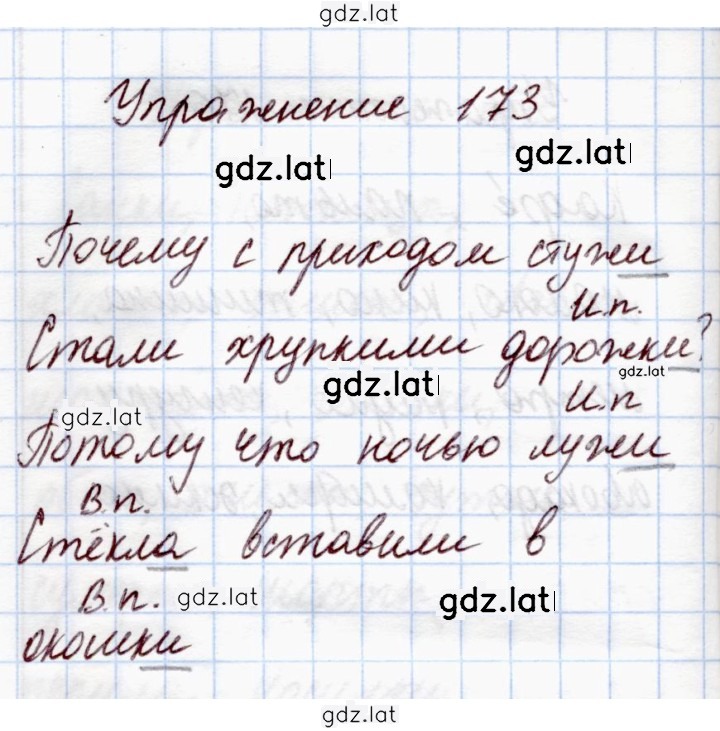 gdz.lat
Упражнение 173
gdz.lat
gdz.lat
Почему с приходом стужи
И.п.
Стали хрупкими дорожки?
gdz.lat
gdz.lat
И.п
gdz.lat
Потому что ночью лужи
В.п.
Стёкла вставили в
В.п.
gdz.lat
gdz.lat
окошки
gdz.lat